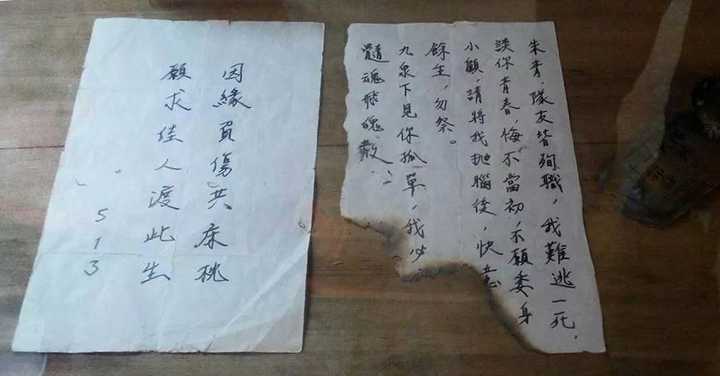 朱青，隊友皆殉職，我難逃一死，
誤你青春，悔不當初，不願委身
小顧，請將我拋腦後，快意
餘生，勿祭。
九泉下見你孤單，我必
髓魂飛魄散
因緣負傷共床桃
願求佳人渡此生
513